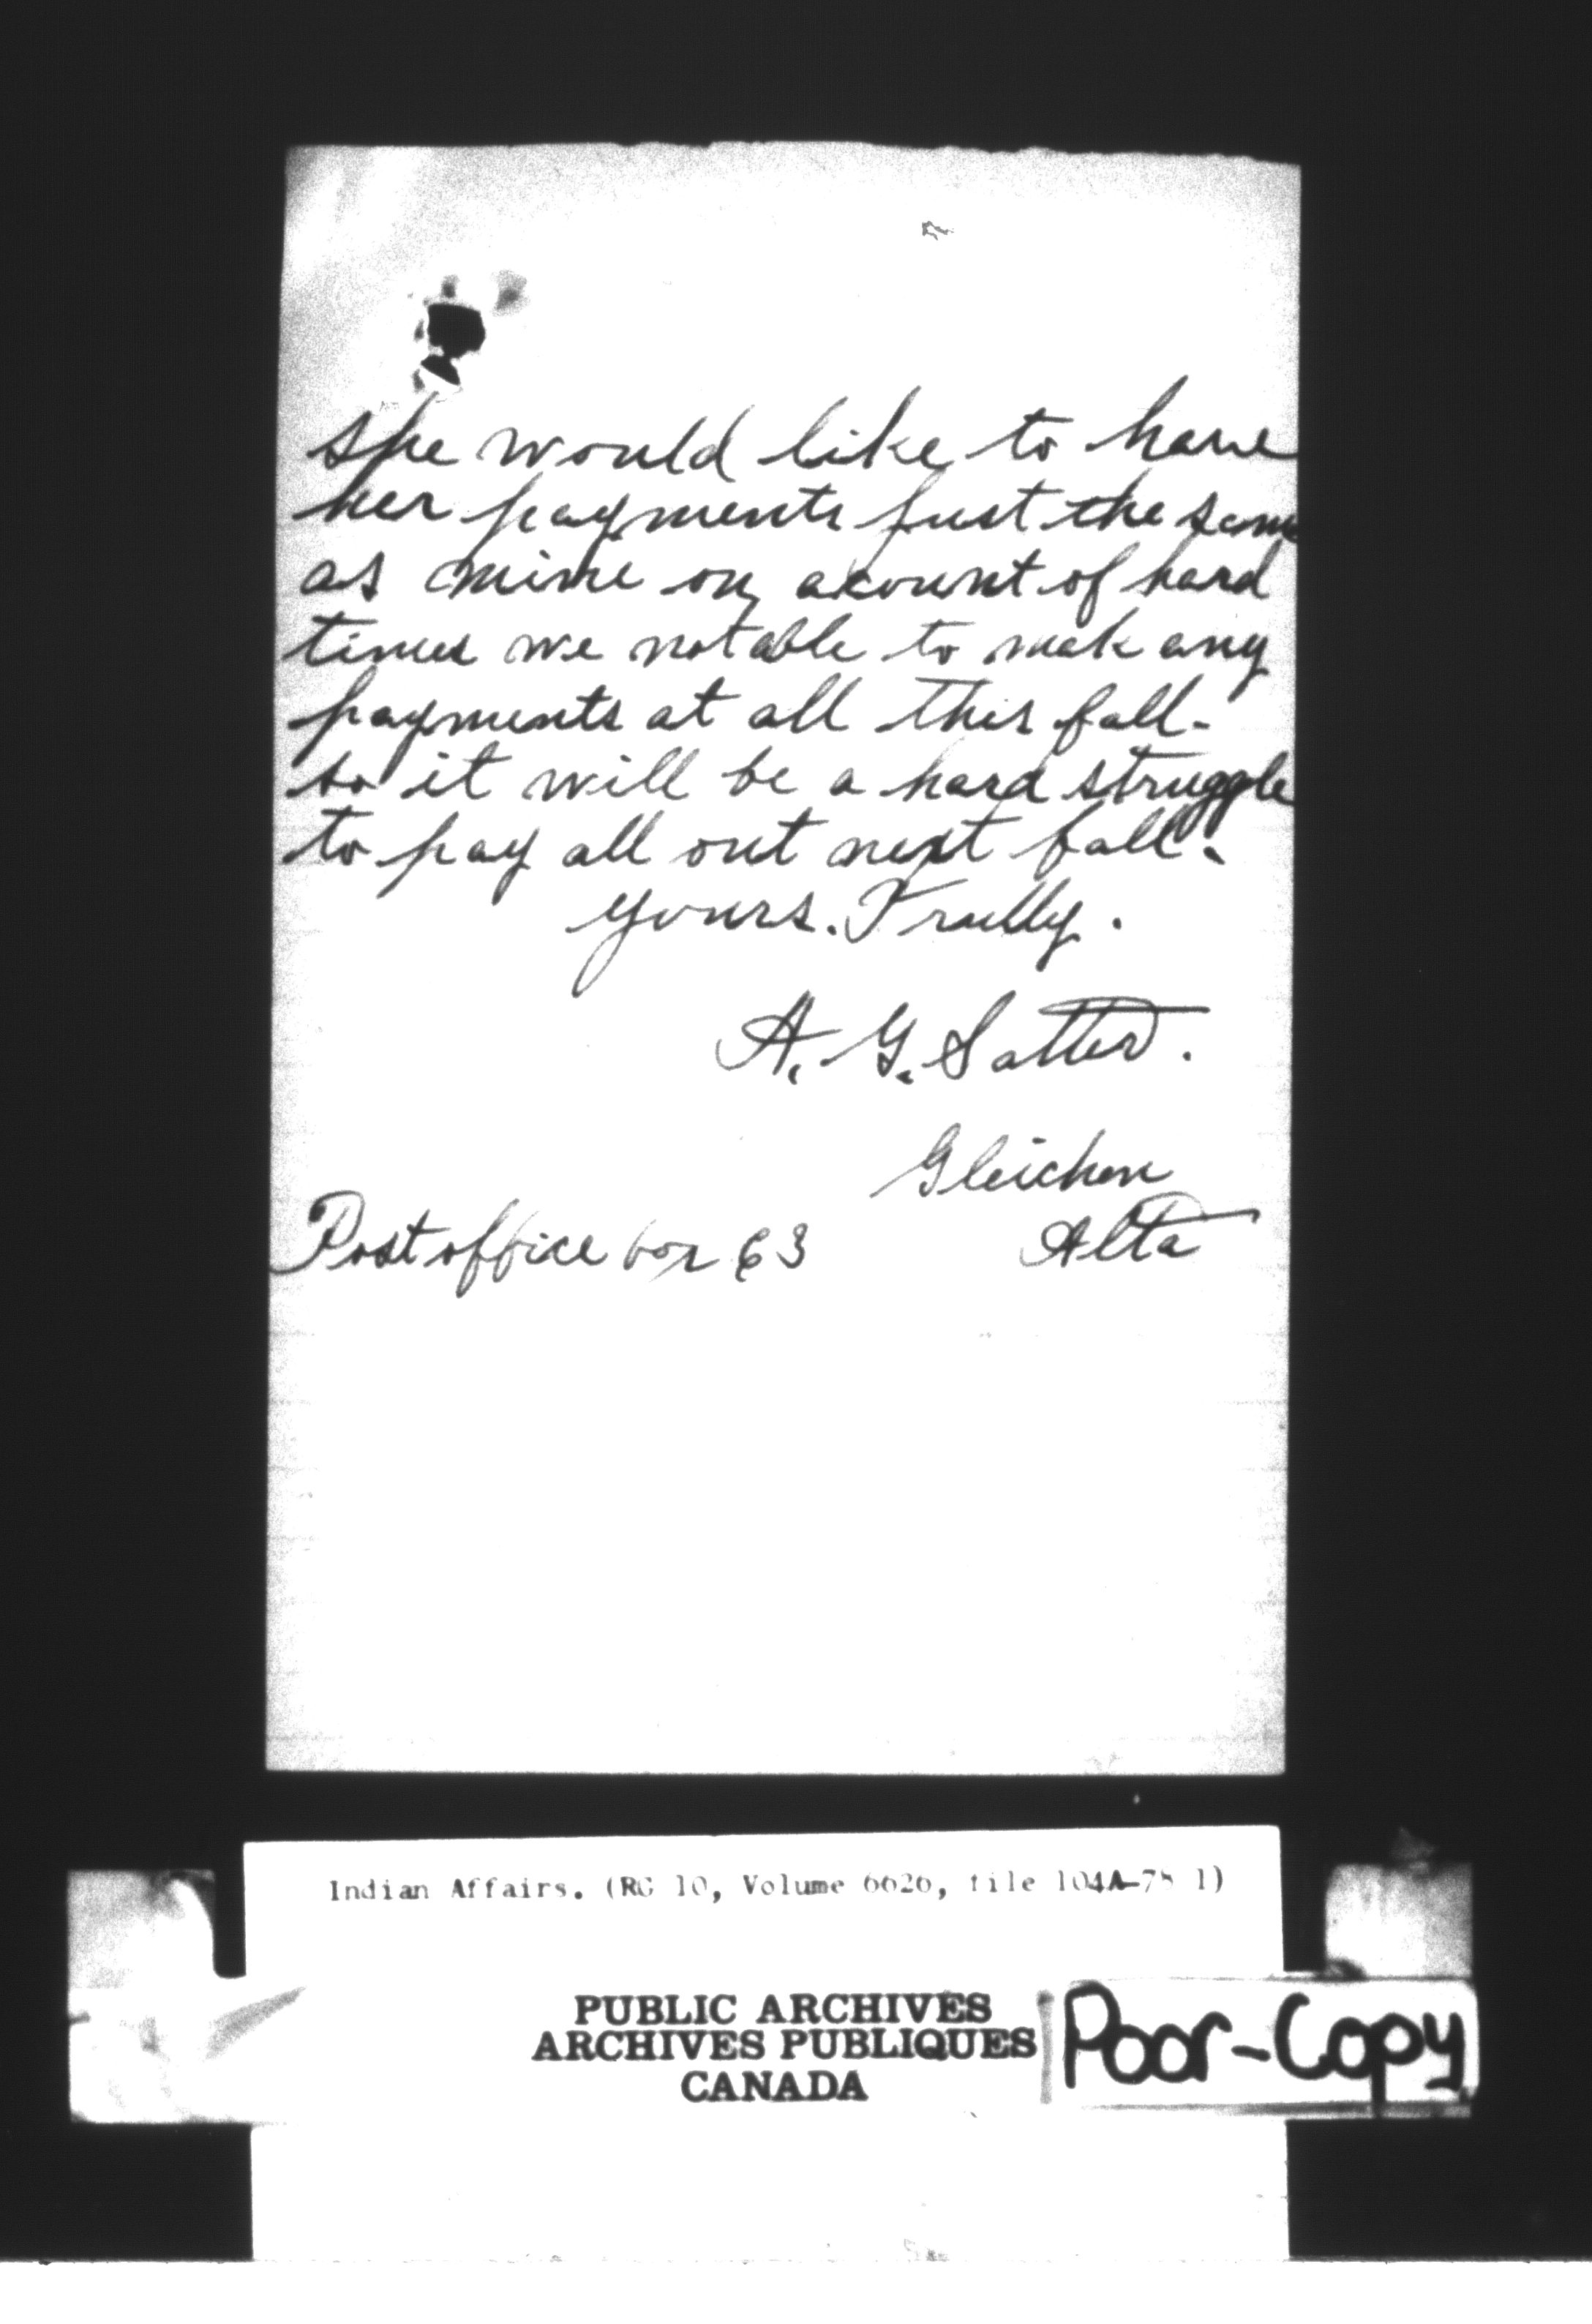 she would like to have
her payments just the same
as mine on acount of hard
times we not able to mak any
payments at all this fall-
so it will be a hard struggle
to pay all out next fall.
yours. Trully.
A. G. Satter.
Gleichen
Post office box 63 Alta
Indian Affairs. (RG 10, Volume 6626, file 104A-78 1)
PUBLIC ARCHIVES
ARCHIVES PUBLIQUES
CANADA
Poor-Copy